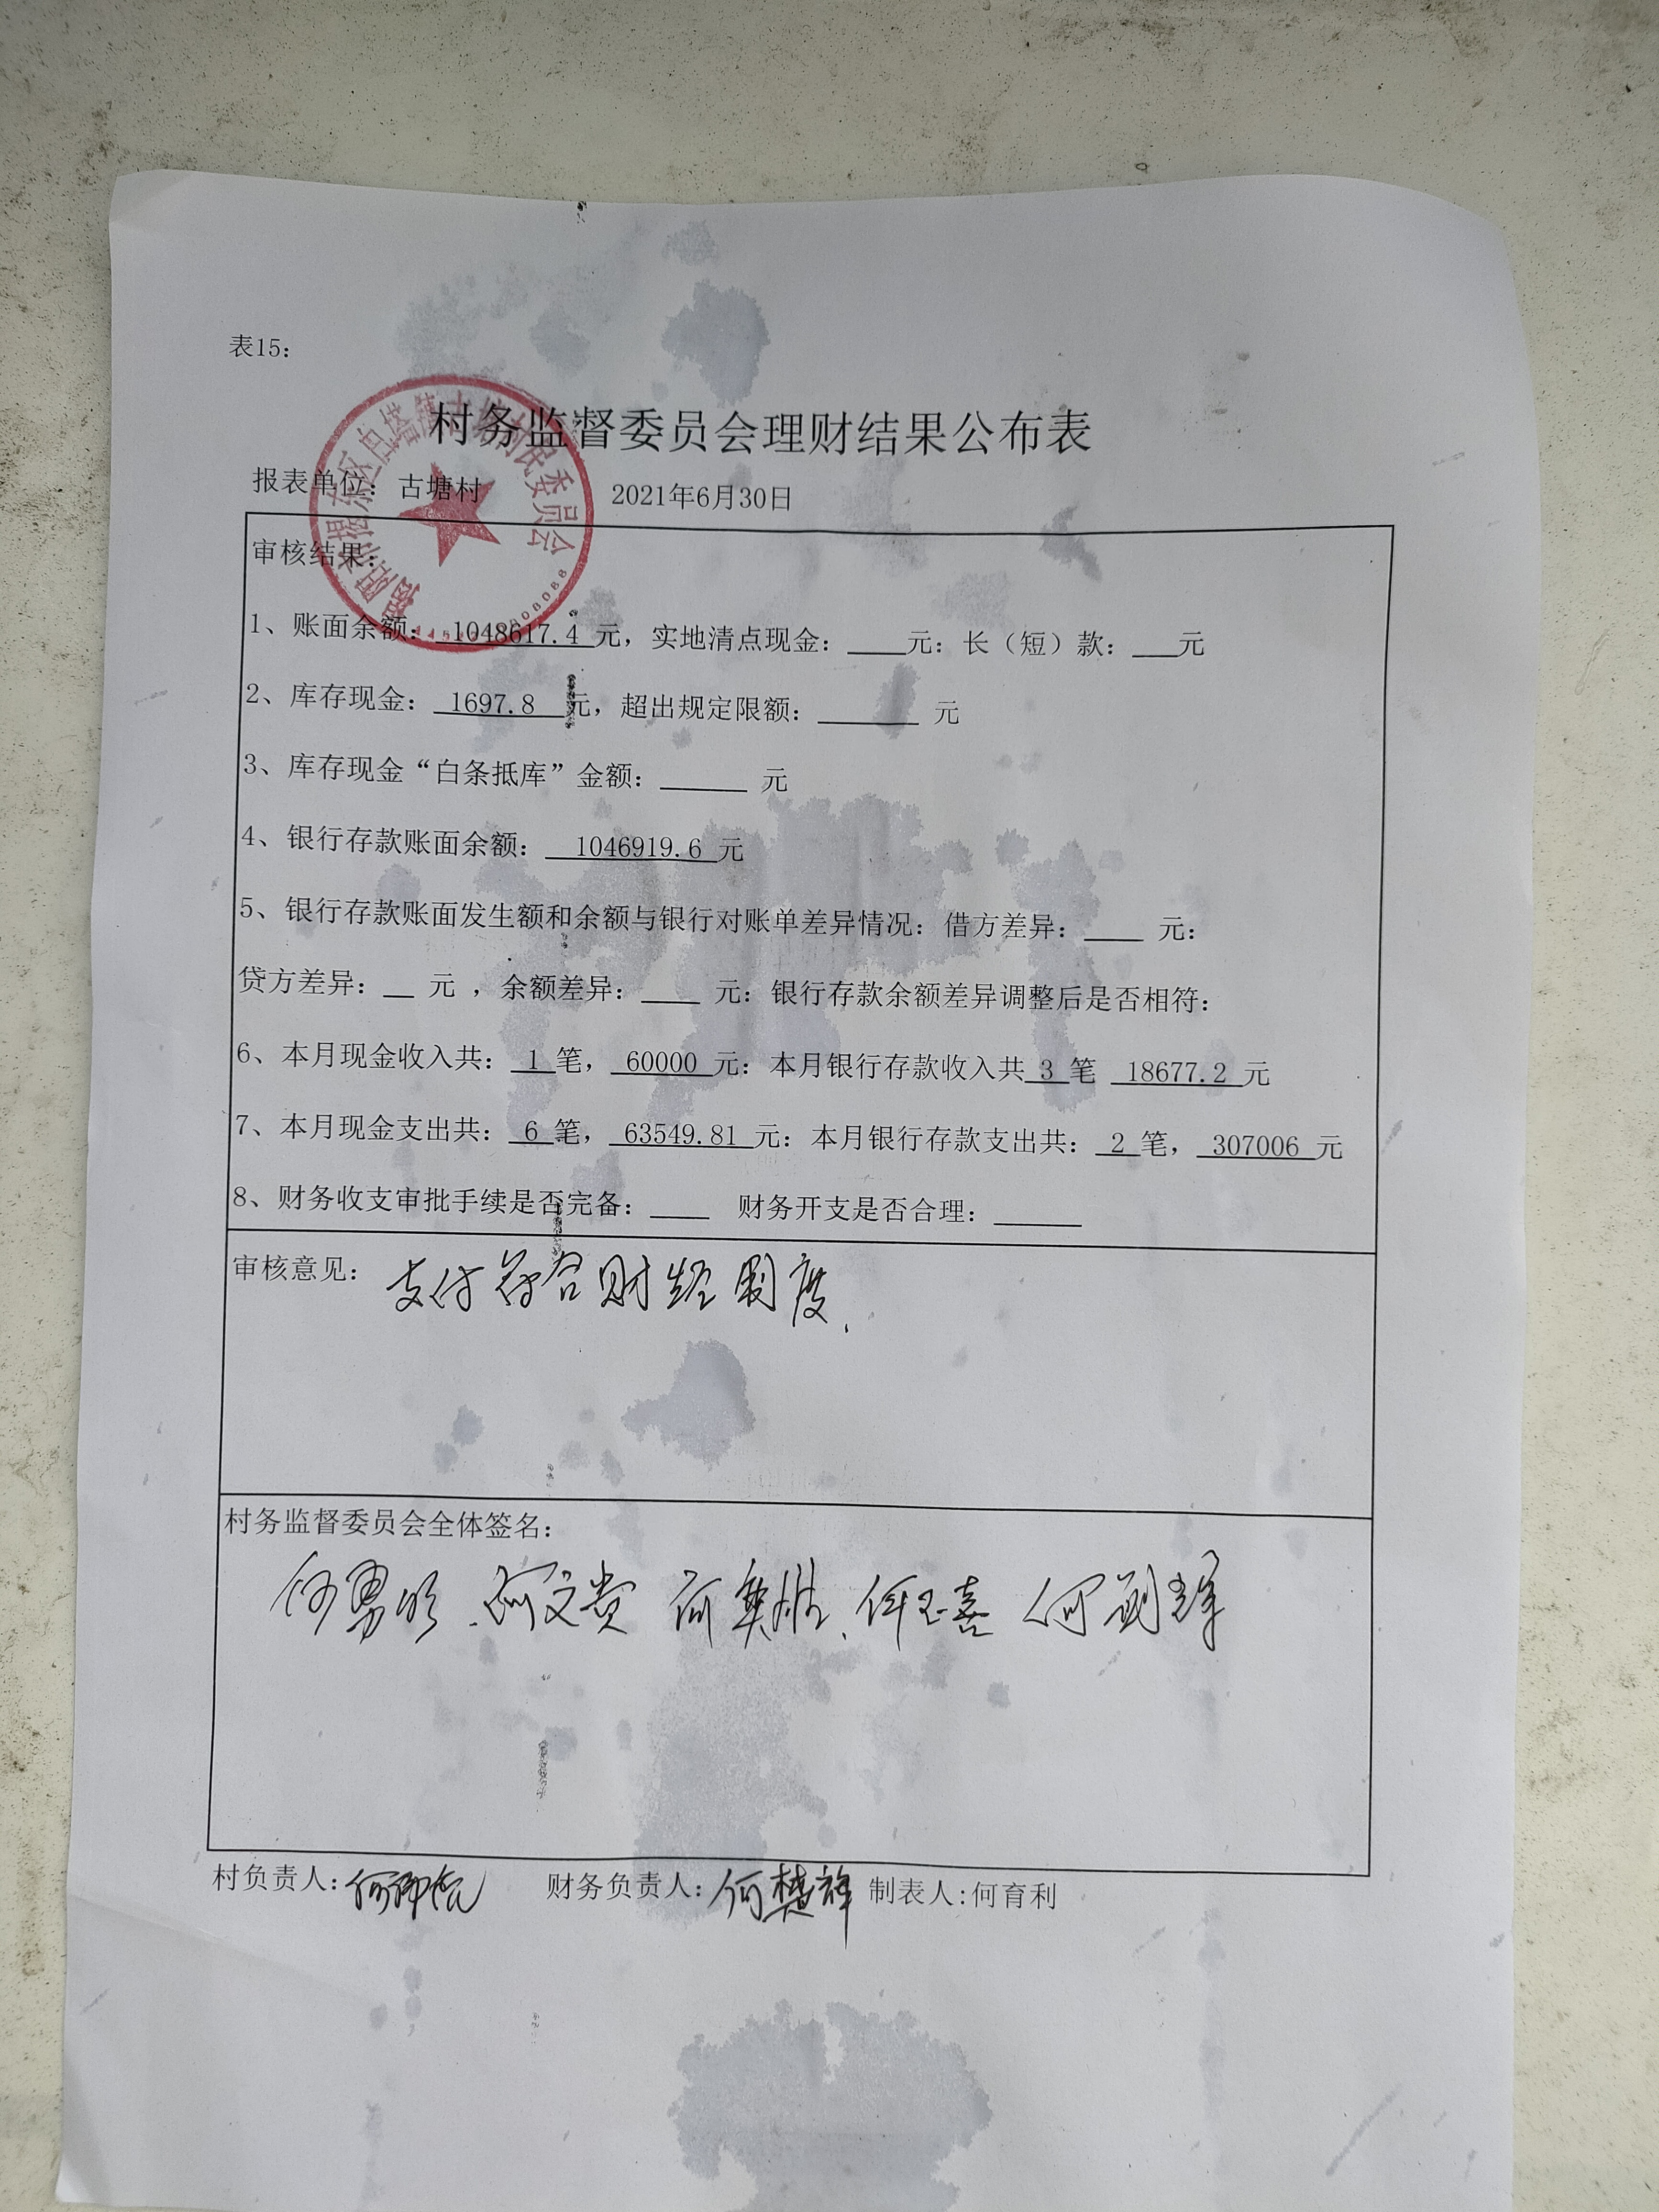 表15：
村务监督委员会理财结果公布表
报表单位：古塘村 2021年6月30日
审核结果：
1、账面余额： 1048617.4 元，实地清点现金：____元：长（短）款：___元
2、库存现金： 1697.8 元，超出规定限额：_______ 元
3、库存现金“白条抵库”金额：______ 元
4、银行存款账面余额： 1046919.6 元
5、银行存款账面发生额和余额与银行对账单差异情况：借方差异：____ 元：
贷方差异：__ 元 ，余额差异：____ 元：银行存款余额差异调整后是否相符：
6、本月现金收入共： 1 笔， 60000 元：本月银行存款收入共 3 笔 18677.2 元
7、本月现金支出共： 6 笔， 63549.81 元：本月银行存款支出共： 2 笔， 307006 元
8、财务收支审批手续是否完备：____ 财务开支是否合理：______
审核意见： 支付符合财经制度．
村务监督委员会全体签名：
何文贵
村负责人： 财务负责人：何楚祥 制表人:何育利